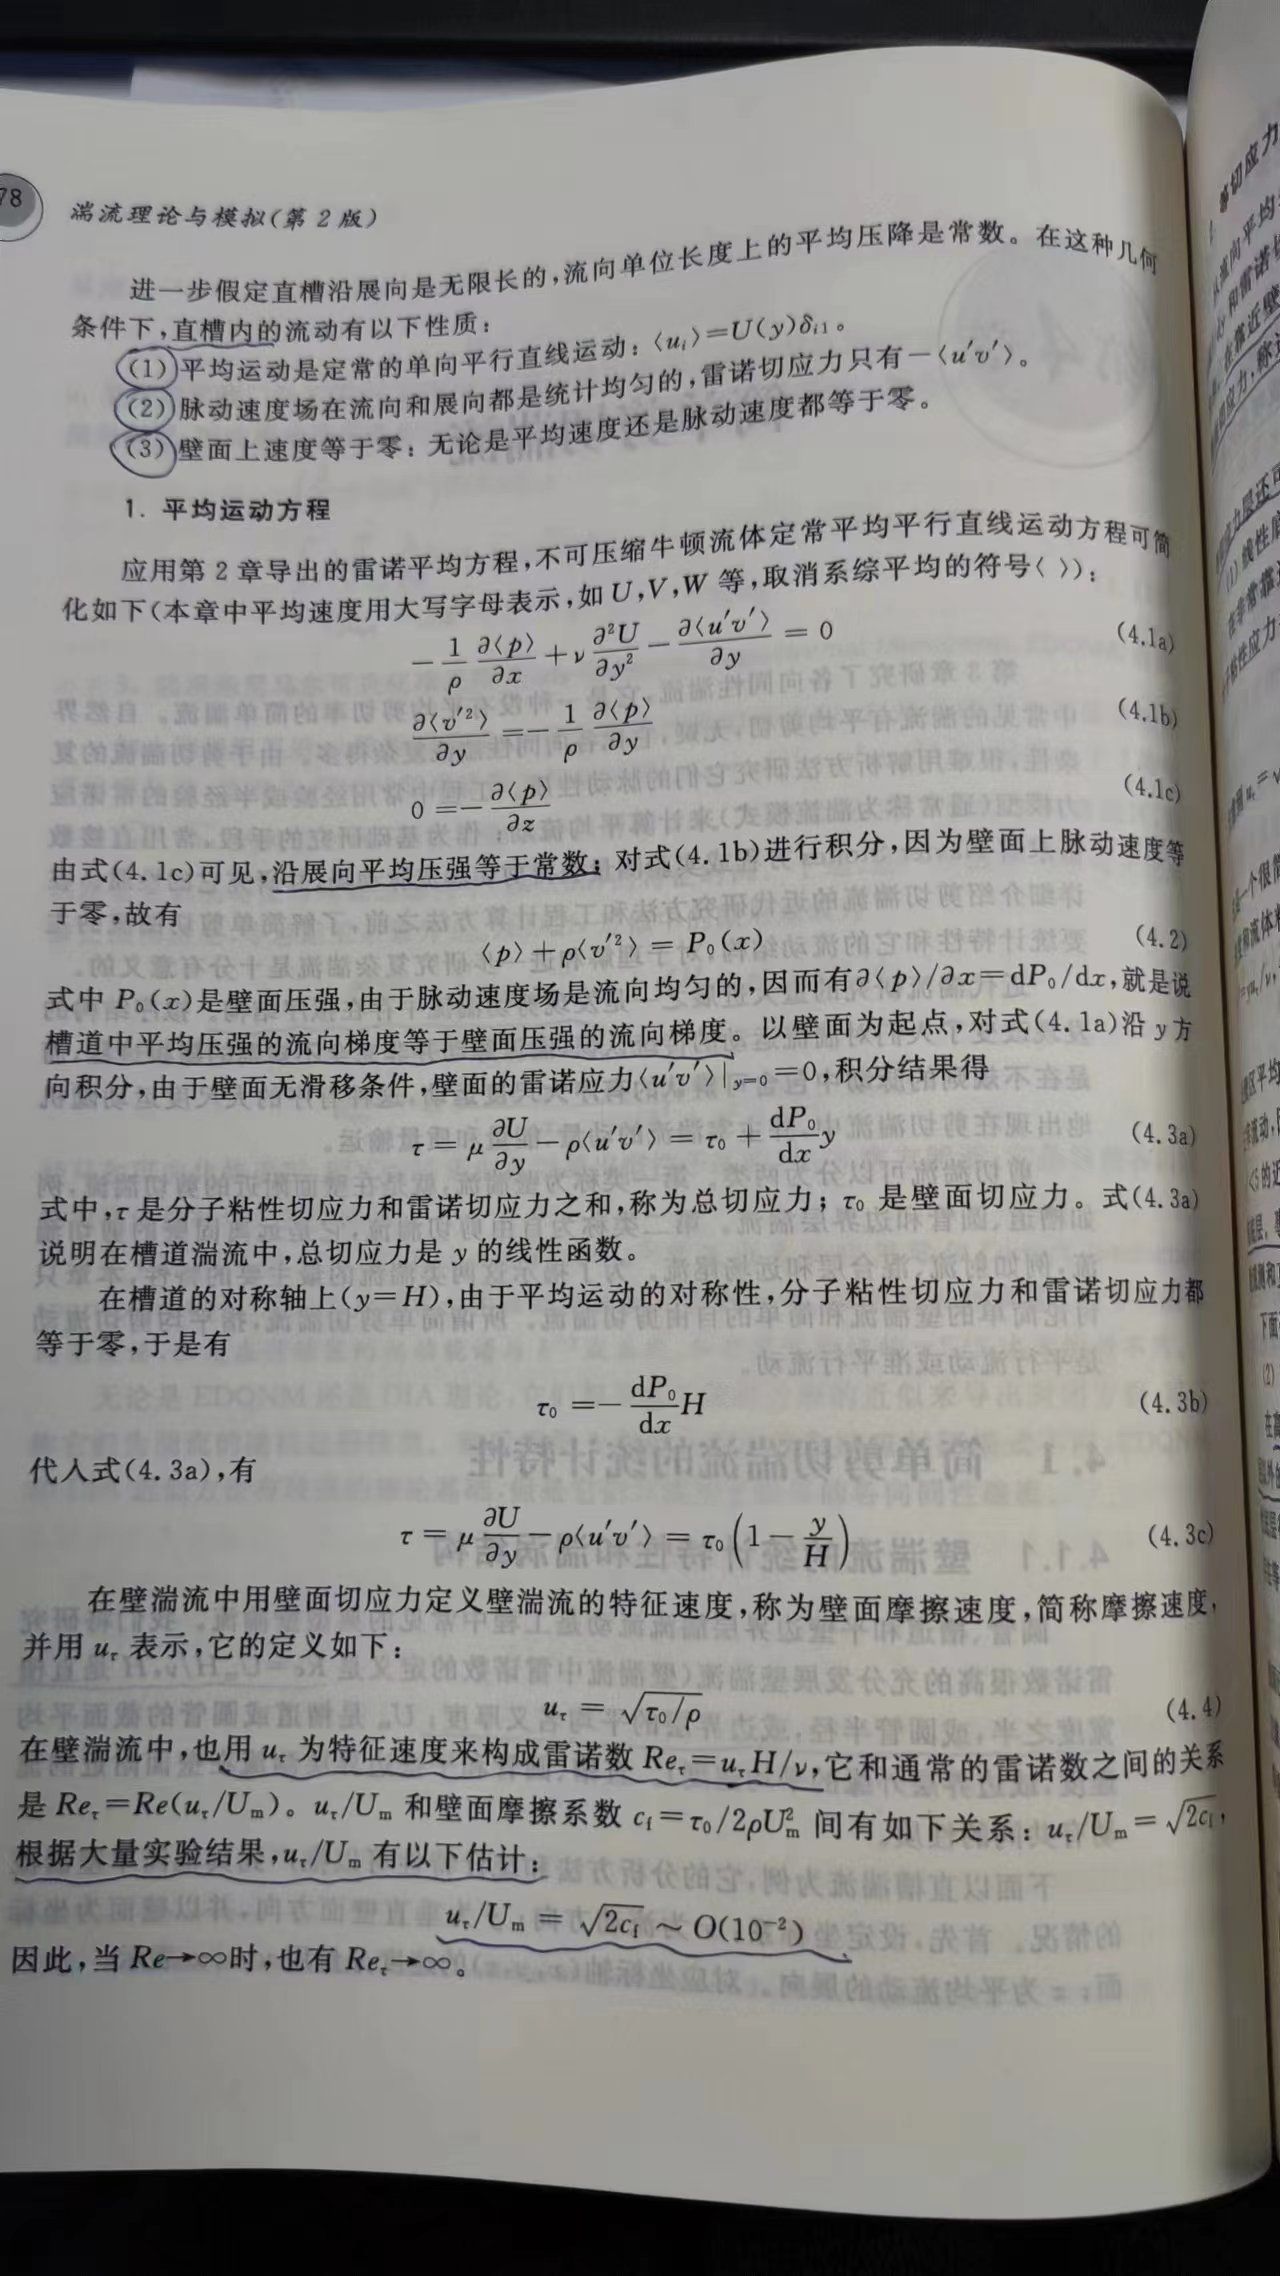 78
湍流理论与模拟(第2版)
进一步假定直槽沿展向是无限长的,流向单位长度上的平均压降是常数。在这种几何
条件下,直槽内的流动有以下性质:
(1) 平均运动是定常的单向平行直线运动:⟨uᵢ⟩=U(y)δᵢ₁。
(2) 脉动速度场在流向和展向都是统计均匀的,雷诺切应力只有-⟨u′v′⟩。
(3) 壁面上速度等于零:无论是平均速度还是脉动速度都等于零。
1. 平均运动方程
应用第2章导出的雷诺平均方程,不可压缩牛顿流体定常平均平行直线运动方程可简
化如下(本章中平均速度用大写字母表示,如U,V,W等,取消系综平均的符号⟨ ⟩):
-1/ρ ∂⟨p⟩/∂x + ν ∂²U/∂y² - ∂⟨u′v′⟩/∂y = 0 (4.1a)
∂⟨v′²⟩/∂y = -1/ρ ∂⟨p⟩/∂y (4.1b)
0 = -∂⟨p⟩/∂z (4.1c)
由式(4.1c)可见,沿展向平均压强等于常数;对式(4.1b)进行积分,因为壁面上脉动速度等
于零,故有
⟨p⟩+ρ⟨v′²⟩ = P₀(x) (4.2)
式中P₀(x)是壁面压强,由于脉动速度场是流向均匀的,因而有∂⟨p⟩/∂x=dP₀/dx,就是说
槽道中平均压强的流向梯度等于壁面压强的流向梯度。以壁面为起点,对式(4.1a)沿y方
向积分,由于壁面无滑移条件,壁面的雷诺应力⟨u′v′⟩|y=0=0,积分结果得
τ = μ ∂U/∂y - ρ⟨u′v′⟩ = τ₀ + dP₀/dx y (4.3a)
式中,τ是分子粘性切应力和雷诺切应力之和,称为总切应力;τ₀是壁面切应力。式(4.3a)
说明在槽道湍流中,总切应力是y的线性函数。
在槽道的对称轴上(y=H),由于平均运动的对称性,分子粘性切应力和雷诺切应力都
等于零,于是有
τ₀ = -dP₀/dx H (4.3b)
代入式(4.3a),有
τ = μ ∂U/∂y - ρ⟨u′v′⟩ = τ₀(1 - y/H) (4.3c)
在壁湍流中用壁面切应力定义壁湍流的特征速度,称为壁面摩擦速度,简称摩擦速度,
并用uτ表示,它的定义如下:
uτ = √(τ₀/ρ) (4.4)
在壁湍流中,也用uτ为特征速度来构成雷诺数Reτ=uτH/ν,它和通常的雷诺数之间的关系
是Reτ=Re(uτ/Um)。uτ/Um和壁面摩擦系数cf=τ₀/2ρU²m间有如下关系:uτ/Um=√2cf,
根据大量实验结果,uτ/Um有以下估计:
uτ/Um = √2cf ~ O(10⁻²)
因此,当Re→∞时,也有Reτ→∞。